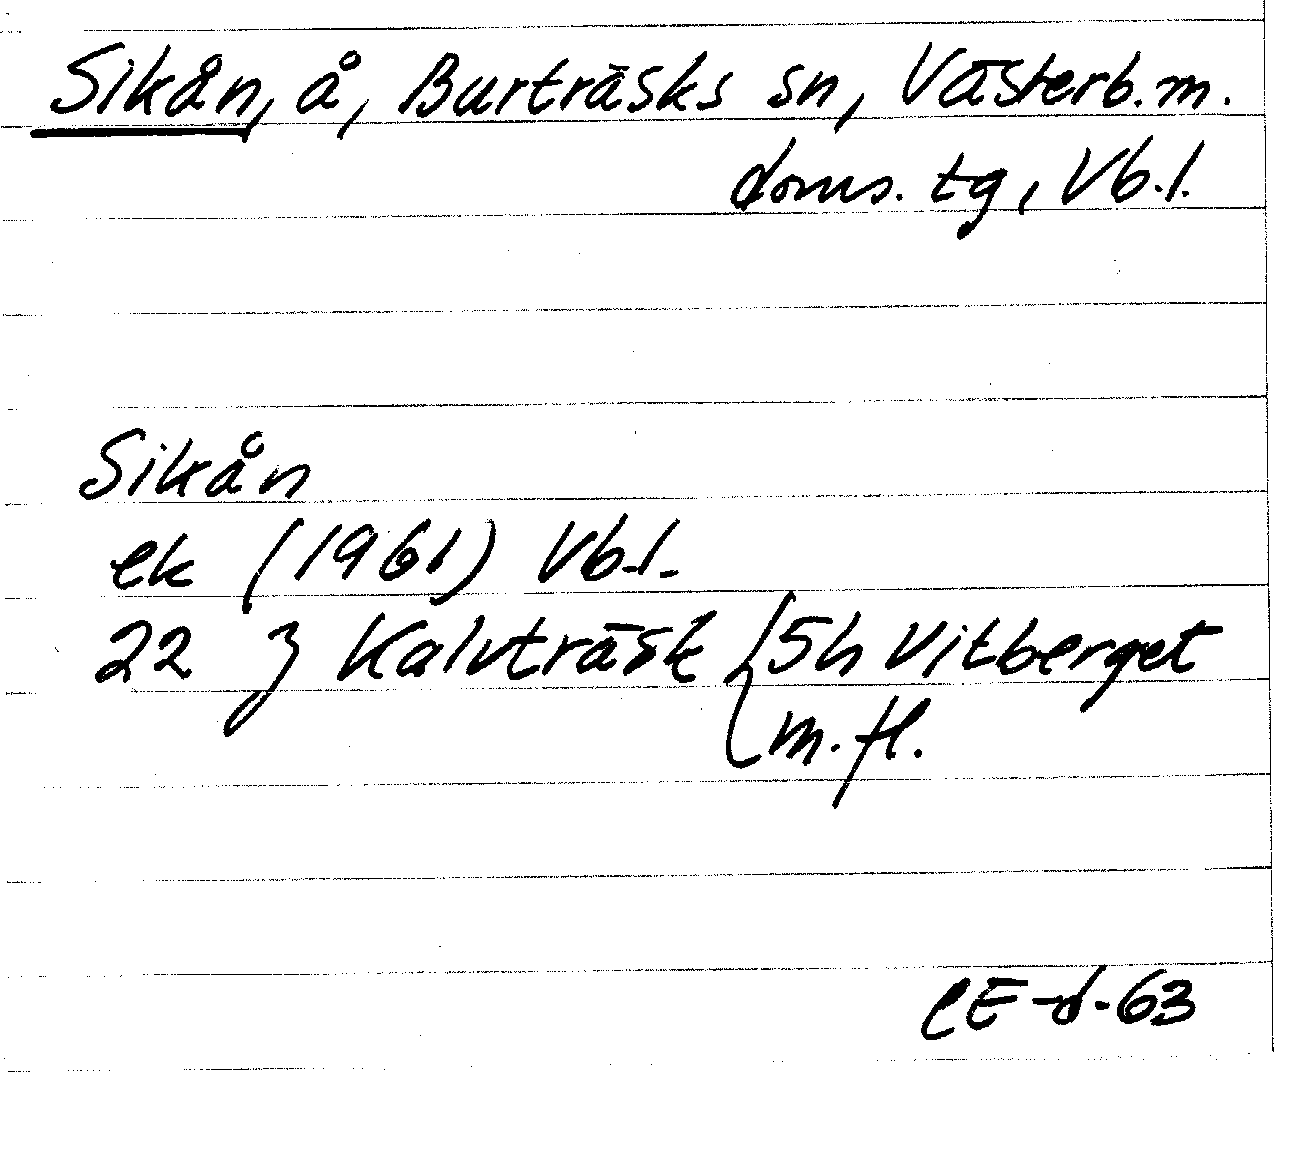 Sikån, å, Burträsks sn, Västerb. m.
doms. tg, Vb. l.
Sikån
ek (1961) Vb. l.
22 J Kalvträsk 5h Vitberget
m. fl.
CE-d-63